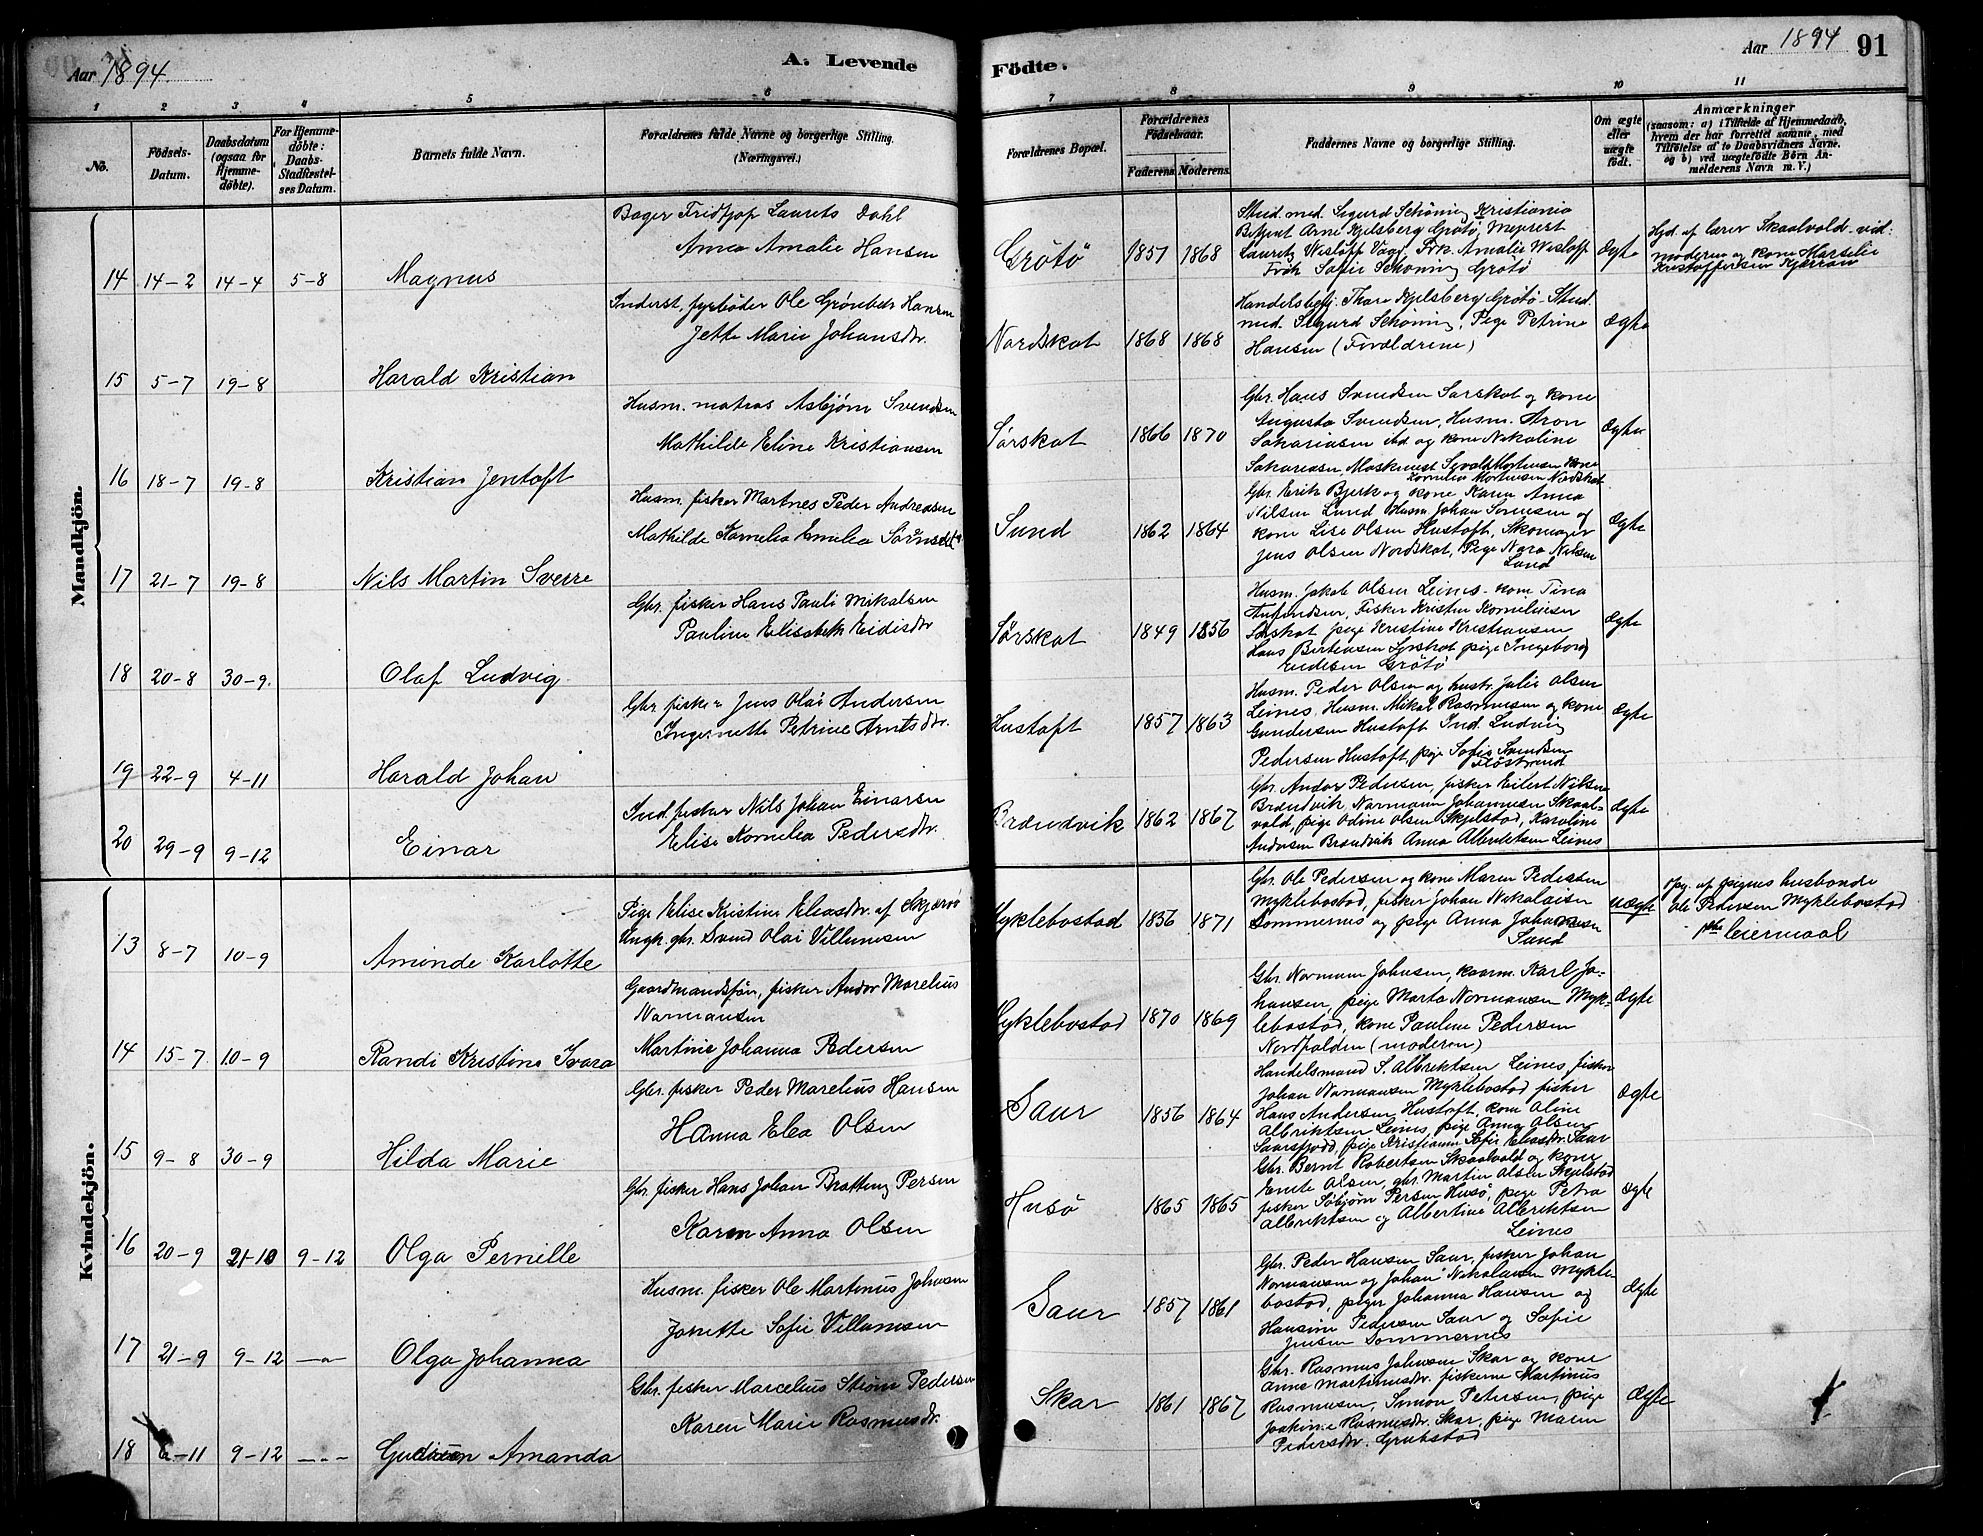 Aar 1894.
A. Levende
Födte.
Aar 1894
91
1 2 3 4 5 6 7 8 9 10 11
No.
Födsels-Datum.
Daabsdatum (ogsaa for Hjemmedöbte).
For Hjemmedöbte: Daabs-Stadfæstelses Datum.
Barnets fulde Navn.
Forældrenes fulde Navne og borgerlige Stilling. (Næringsvei.)
Forældrenes Bopæl.
Forældrenes Födselsaar.
Faderens. Moderens.
Faddernes Navne og borgerlige Stilling.
Om ægte eller uægte födt.
Anmærkninger
(saasom: a) i Tilfælde af Hjemmedaab,
hvem der har forrettet samme, med
Tilföielse af to Daabsvidners Navne,
og b) ved uægtefödte Börn Anmelderens Navn m. V.)
Mandkjön.
14 14-2 14-4 5-8 Magnus
Bager Fridtjof Laurets Dahl
Anna Amalie Hansen
Grötö 1857 1868
Stud. med. Sigurd Schöning Kristiania
Betjent Arne Kjelsberg Grötö,
Lauritz Wisløff Frk. Amalie Wisløff
Frk. Sofie Schöning Grötö
Ægte
Hjd. af lærer Skaalvold. vid:
moderen og kone Marselie
Kristoffersen Kjærran
15 5-7 19-8 Harald Kristian
Inderst. fyrbøder Ole Grønbek Hansen
Jette Marie Johansdtr.
Nordskot 1868 1868
Handelsbetj. Thare Kjelsberg Grötö. Stud.
med. Sigurd Schöning, Pige Petrine
Hansen (Forældrene)
Ægte
16 18-7 19-8 Kristian Jentoft
Husm. matros Asbjørn Svendsen
Mathilde Eline Kristiansen
Sørskot 1866 1870
Gbr. Hans Svendsen Sørskot og kone
Augusta Svendsen, Husm. Aron
Sakariasen ibd og kone Nikoline
Sakariasen Maskinist Sivald Mortensen kone
Kornelia Mortensen Nordskot
Ægte
17 21-7 19-8 Nils Martin Sverre
Husm. fisker Martnes Peder Andreasen
Mathilde Kornelia Emilia
Sund 1862 1864
Gbr. Erik Bjerk og kone Karen Anna
Nilsen Sund Husm. Johan Sørensen og
kone Lise Olsen Hustoft, Skomager
Jens Olsen Nordskot, Pige Nara Nilsen
Sund
Ægte
18 20-8 30-9. Olaf Ludvig.
Gbr. fisker Hans Pauli Mikalsen
Pauline Elisabeth Eidisdtr
Sørskot 1849 1856
Husm. Jakob Olsen Leines. kone Tina
Antonsen, Fisker Kristen Korneliusen
Sørskot pige Kristine Kristiansen
Hans Bertensen Sørskot pige Ingeborg
Eidesen Grötö
Ægte
19 22-9 4-11 Harald Johan
Gbr. fisker Jens Olai Andersen
Ingernette Petrine Arntsdtr.
Hustoft 1857 1863
Husm. Peder Olsen og hustr. Julie Olsen
Leines, Husm. Mikal Rasmussen og kone
Gundersen Hustoft Ind. Ludvig
Pedersen Hustoft, pige Sofie Svendsen
Ægte
20 29-9 9-12 Einar
Ind. fisker Nils Johan Einarsen
Elise Kornelia Pedersdtr.
Brændvik 1862 1867
Gbr. Andor Pedersen, fisker Eilert Nilsen
Brændvik, Normann Johannesen Skaalvold,
pige Odine Olsen Skjelstad, Karoline
Andersen Brændvik Anna Albriktsen Leines
Ægte
Kvindekjön.
13 8-7 10-9 Aminde Karlotte
Pige Elise Kristine Eliasdtr. af Skjærvö
Ungk. gbr. Svend Olai Villumsen
Myklebostad 1856 1871
Gbr. Ole Pedersen og kone Maren Pedersen
Myklebostad, fisker Johan Nikolaisen
Sommernes og pige Anna Johansen
Sund
uægte
Opg. af pigens husbonde
Ole Pedersen Myklebostad
leiermaal
14 15-7 10-9 Randi Kristine Ivara
Gaardmandssøn, fisker Andor Marelius
Normansen
Martine Johanna Pedersen
Myklebostad 1870 1869
Gbr. Normann Johnsen, kaarm. Karl Johansen,
pige Marta Normansen Myklebostad,
kone Pauline Pedersen
Nordfolden (moderen)
Ægte
15 9-8 30-9 Hilda Marie
Gbr. fisker Peder Marelius Hansen
Hanna Elea Olsen
Saur 1856 1864
Handelsmand S. Albriktsen Leines, fisker
Johan Normansen Myklebostad fisker
Hans Andersen Hustoft, kone Aline
Albriktsen Leines, pige Anna Olsen
Saursfjord, pige Kristianne Sofie Eliasdtr. Saur
Ægte
16 20-9 21-10 9-12 Olga Pernille
Gbr. fisker Hans Johan Bratteng Persen
Karen Anna Olsen
Husö 1865 1865
Gbr. Bernt Robertsen Skaalvold og kone
Emte Olsen, gbr. Martin Olsen Skjelstad
fisker Søbjørn Persen Husö, pige Petra
Albriktsen og Albertine Albriktsen
Leines
Ægte
17 21-9 9-12 —"— Olga Johanna
Husm. fisker Ole Martinus Johnsen
Jonette Sofie Villumsen
Saur 1857 1861
Gbr. Peder Hansen Saur, fisker Johan
Normansen og Johan Nikolaisen Myklebostad,
piger Johanna Hansen og
Hansine Pedersen Saur og Sofie
Jensen Sommernes
Ægte
18 6-11 9-12 —"— Gudrun Amanda
Gbr. fisker Marcelius Strøm Pedersen
Karen Marie Rasmusdtr.
Skar 1861 1867
Gbr. Rasmus Johnsen Skar og kone
Anne Martinusdtr. fiskerne Martinus
Rasmusen, Simon Petersen, pige
Joakine Rasmusdtr. Skar, pige Maren
Pedersdtr. Grubstad
Ægte